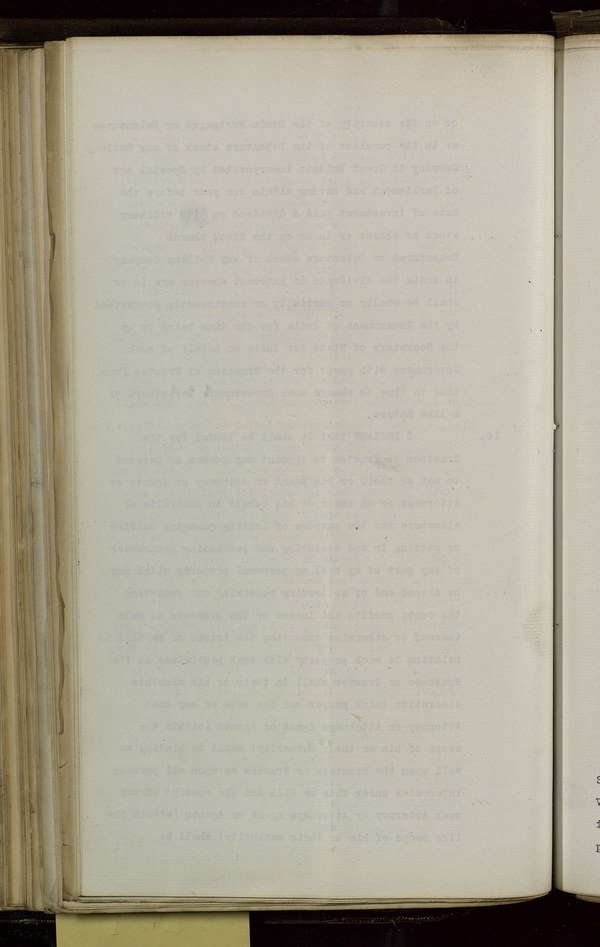 or on the security of the Bonds Mortgages or Debentures
or in the purchase of the Debenture stock of any Railway
Company in Great Britain incorporated by Special Act
of Parliament and having within one year before the
date of investment paid a dividend on its ordinary
stock or shares or in or on the Stock shares
Debentures or Debenture Stock of any Railway Company
in India the dividends or interest whereon are or
shall be wholly or partially or guaranteed
by the Government of India for the time being or by
the Secretary of State for India on behalf of such
Government with power for the Trustees or Trustee from
time to time to change such investments for others of
a like nature.
16. I DECLARE that it shall be lawful for the
Trustees or Trustee to appoint any person or persons
to act as their or his Agent or Attorney or Agents or
Attorneys or on their or his behalf in Australia or
elsewhere for the purpose of
or getting in and and
of any part of my real or personal property which may
be abroad and of collecting receiving and remitting
the rents profits and income or the proceeds of sale
thereof or otherwise executing the trusts of my Will in
relation to such property with such provisions as the
Trustees or Trustee shall in their or his absolute
discretion think proper and the acts of any such
Attorney or Attorneys Agent or Agents (within the
scope of his or their authority) shall be binding as
well upon the Trustees or Trustee as upon all persons
interested under this my Will and the receipt of any
such Attorney or Attorneys Agent or Agents (within the
like scope of his or their authority) shall be